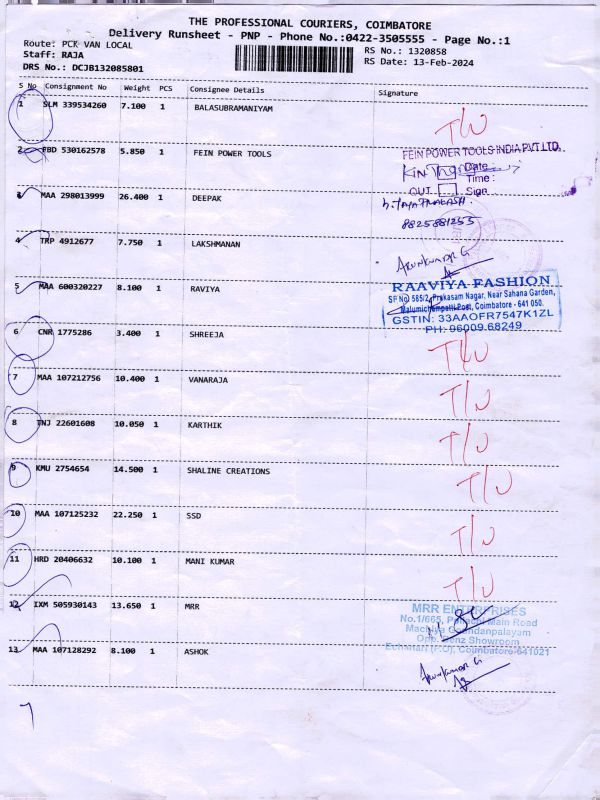 THE PROFESSIONAL COURIERS, COIMBATORE
Delivery Runsheet - PNP - Phone No.:0422-3505555 - Page No.:1
Route: PCK VAN LOCAL
RS No.: 1320858
Staff: RAJA
RS Date: 13-Feb-2024
DRS No.: DCJB132085801
S No Consignment No Weight PCS Consignee Details Signature
1 SLM 339534260 7.100 1 BALASUBRAMANIYAM T/U
2 PBD 530162578 5.850 1 FEIN POWER TOOLS
FEIN POWER TOOLS INDIA PVT.LTD.
IN Date:
Time:
OUT Sign
3 MAA 298013999 26.400 1 DEEPAK
8825881255
4 TRP 4912677 7.750 1 LAKSHMANAN
Arunkumar G
5 MAA 600320227 8.100 1 RAVIYA
RAAVIYA FASHION
SF No 585/2, Prakasam Nagar, Near Sahana Garden,
Malumichampatti Post, Coimbatore - 641 050.
GSTIN: 33AAOFR7547K1ZL
PH: 96009 68249
6 CNR 1775286 3.400 1 SHREEJA T/U
7 MAA 107212756 10.400 1 VANARAJA T/U
8 TNJ 22601608 10.050 1 KARTHIK T/U
9 KMU 2754654 14.500 1 SHALINE CREATIONS T/U
10 MAA 107125232 22.250 1 SSD T/U
11 HRD 20406632 10.100 1 MANI KUMAR T/U
12 IXM 505930143 13.650 1 MRR
MRR ENTERPRISES
No.1/665, Main Road
Opp. Showroom
Coimbatore-641021
13 MAA 107128292 8.100 1 ASHOK
Arunkumar G
7